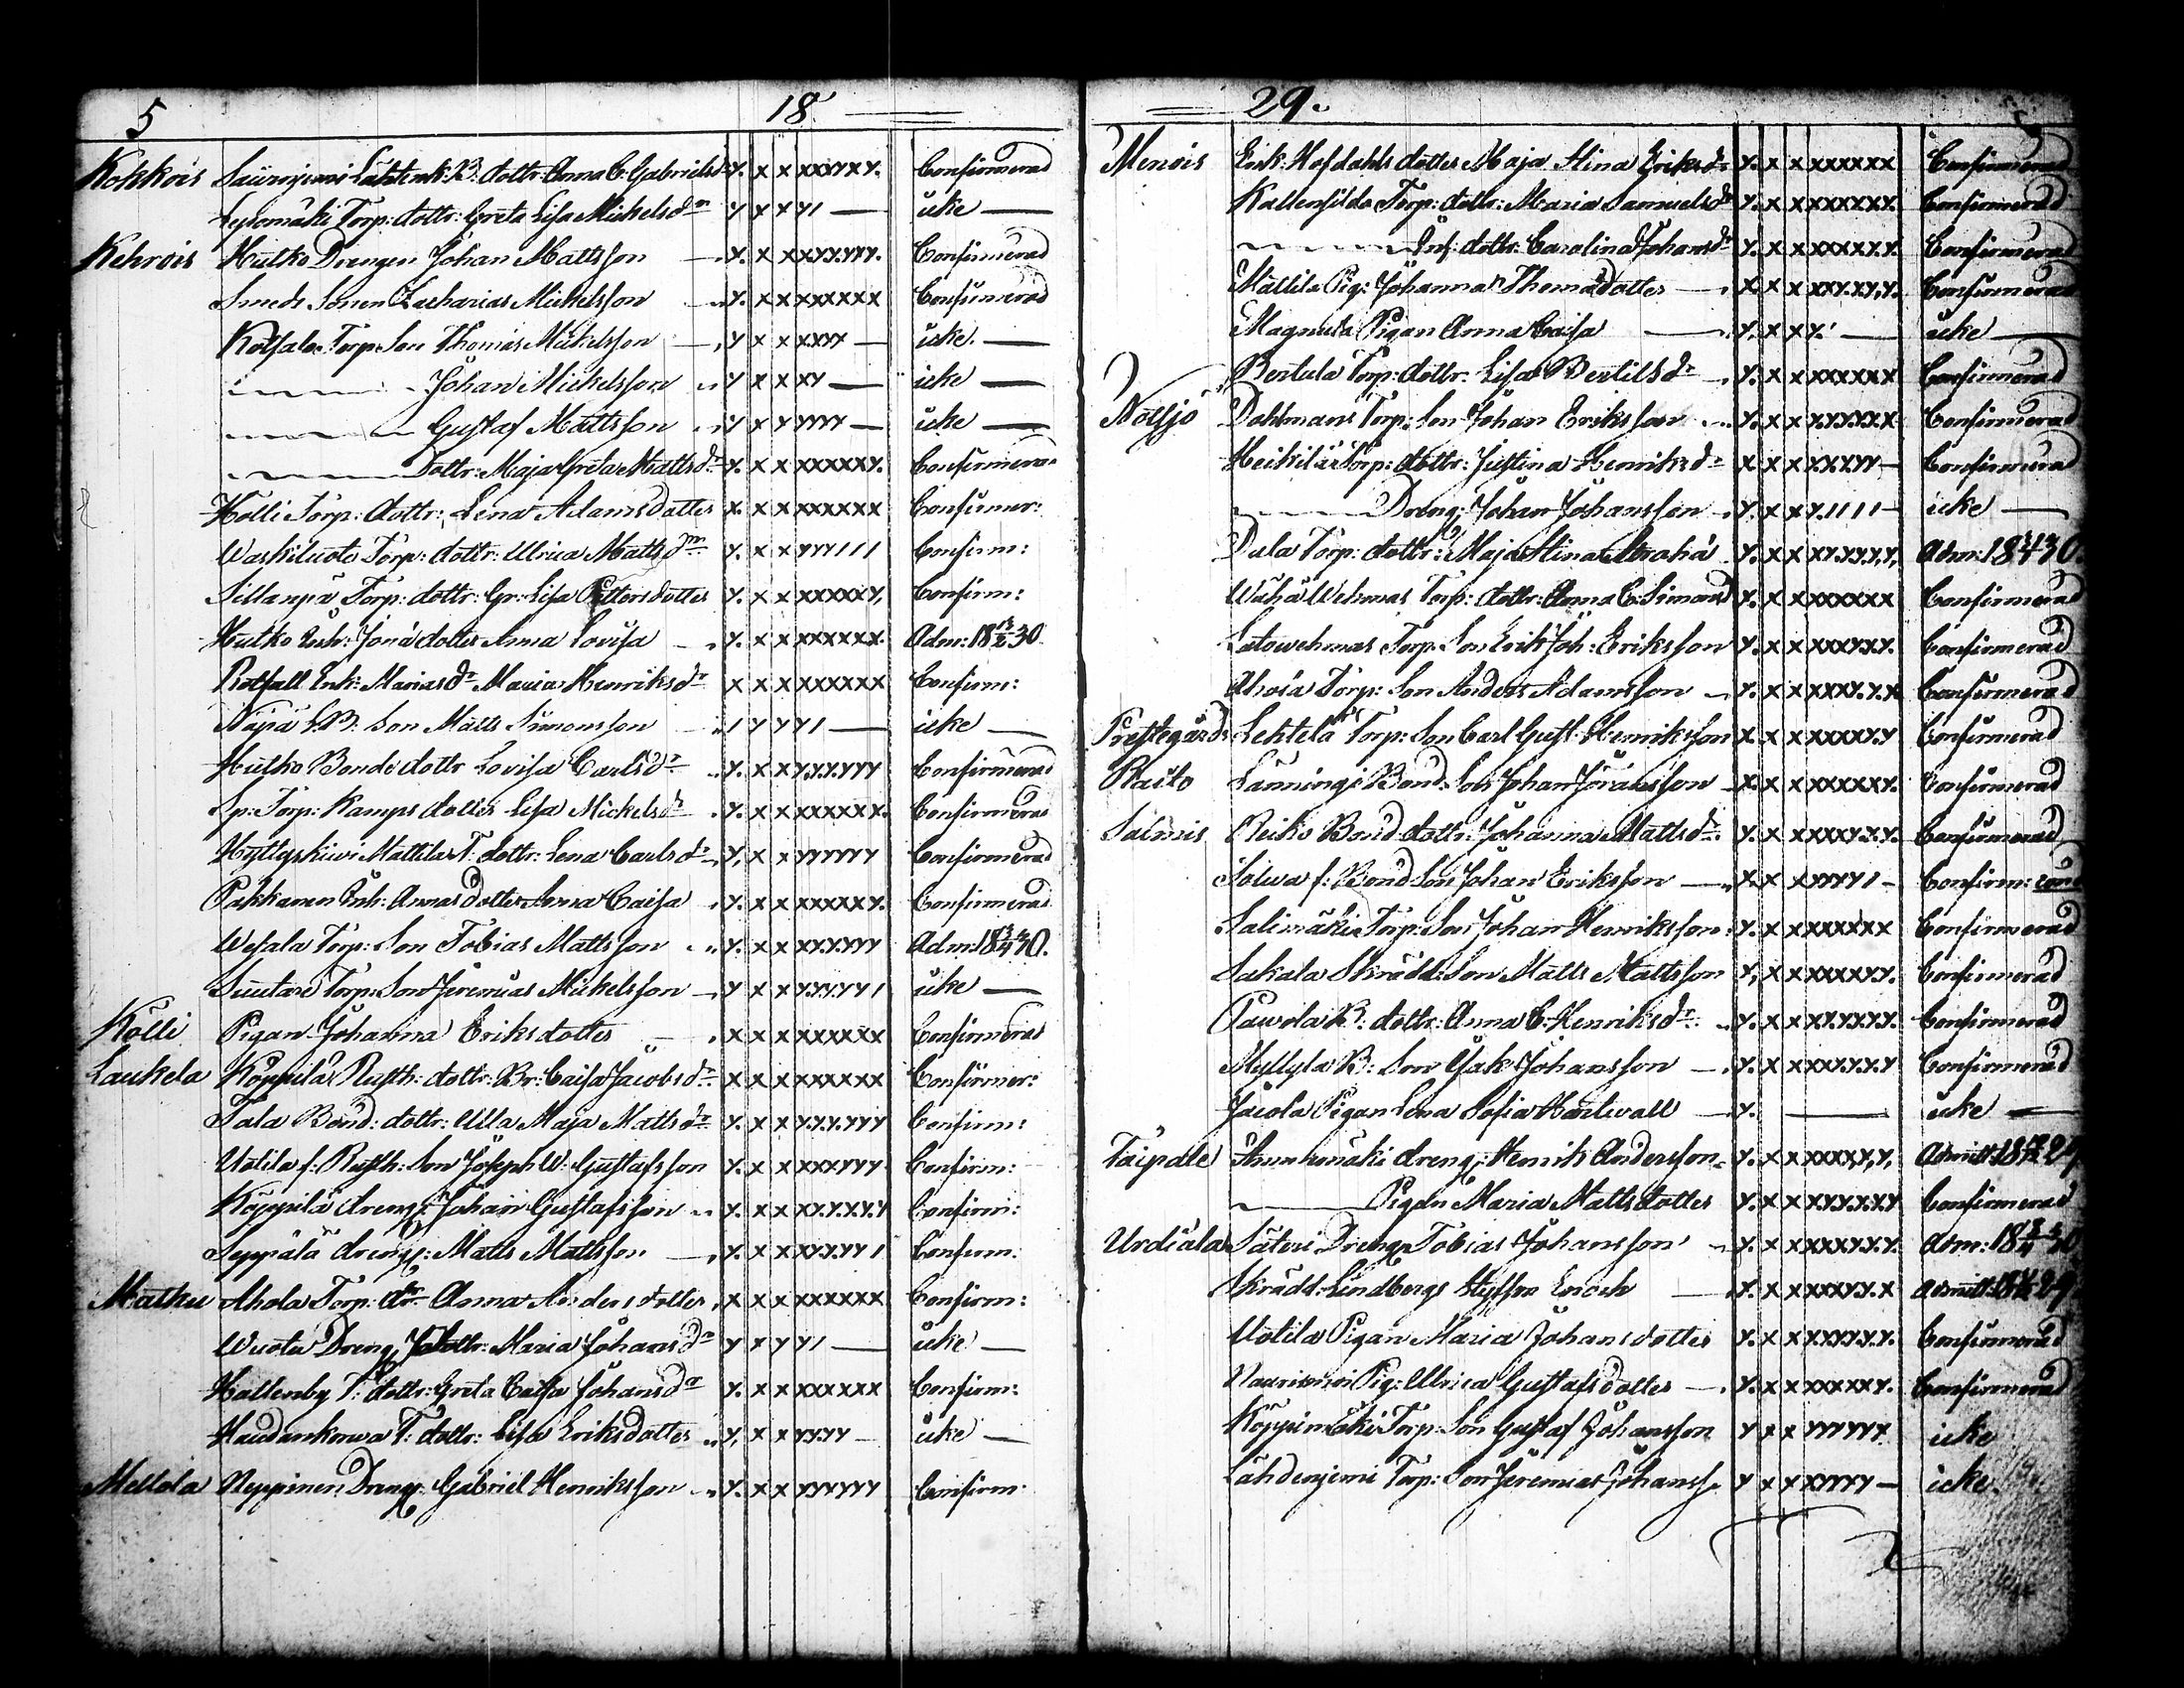 5 18 29.
Kokkois Saurojemi Lähtenk: B: dottr: Anna C. Gabrielsdr y. x x xxxyxy. Confirmerad
Torp: dottr: Greta Lisa Mickelsdr y x x y1 — icke —
Kehrois Hutko Drengen Johan Mattsson y. x x xxyyyyy. Confirmerad
Smeds Sonen Zacharias Mickelsson y. x x xxxxxxx Confirmerad
Kotsalo Torp: Son Thomas Mickelsson y x x xxyy — icke. —
Johan Mickelsson y x x xy — icke —
Gustaf Mattsson y x x yyyy — icke —
Dottr: Maja Greta Mattsdr y. x x xxxxxy. Confirmera
Kölli Torp: dottr: Lena Adamsdotter x. x x xxxxxx Confirmer:
Waskiluoto Torp: dottr: Ulrica Mattsdr y. x x yyy111 Confirm:
Sillanpä Torp: dottr: Gr: Lisa Pettersdotter y. x x xxxxxy. Confirm:
Hutko Inh: Jona dotter Anna Lovisa y. x x xxxxxx. Adm: 18 30.
Rotfall Enk: Marias dr Maria Henriksdr x x x xxxxxx Confirm:
Näpä S.B. Son Matts Simonsson 1 y y y1 — icke —
Hutko Bonde dottr Lovisa Carlsdr y. x x yyyyyy Confirmerad
Sp: Torp: Kamps dotter Lisa Mickelsdr y. x x xxxxxx. Confirmerad
Hyttyskivi Mattila T: dottr: Lena Carlsdr y. x x yyyyyy Confirmerad
Pakkanen Inh: Annas dotter Anna Caisa y. x x xxxxxy. Confirmerad
Wesala Torp: Son Tobias Mattsson y. x x xxyyyyy Adm: 18 30.
Suutare Torp: Son Jeremias Mickelsson y x x yyyyy1 icke —
Kölli Pigan Johanna Eriksdotter x x x xxxxxx Confirmerad
Laukela Köppilä Rusth: dottr: Br: Caisa Jacobsdr x x x xxxxxx Confirmer:
Tala Bond: dottr: Ulla Maja Mattsdr y. x x yyyyyy Confirm:
Uotila f: Rusth: Son Joseph W: Gustafsson y. x x xxxyyy Confirm:
Köppilä dreng: Johan Gustafsson y. x x xyyxyy Confirm:
Seppälä dreng: Matts Mattsson y. x x xxyyy1 Confirm:
Matku Ahola Torp: dr Anna Andersdotter x x x xxxxxx Confirm:
Wuoto Dreng: dottr: Maria Johansdr y x y y1 — icke —
Hallenby T: dottr: Greta Caisa Johansdr y. x x xxxxxx Confirm:
Haudankorva T: dottr: Lisa Eriksdotter y. x x yyyy — icke —
Mellola Neppinen Dreng: Gabriel Henriksson y. x x yyyyyy Confirm:
Menois Enk: Hofdahls dotter Maja Stina Eriksdr y. x x xxxxxx Confirmerad
Kallenfilds Torp: dottr: Maria Samuelsdr y. x x xxxxxx. Confirmerad
Inh: dottr: Carolina Johansdr y. x x xxxxyy. Confirmerad
Mattila Pig: Johanna Thomædotter x. x x xxyxyy. Confirmerad
Magnula Pigan Anna Caisa y. x x y. — icke —
Bertula Torp: dottr: Lisa Bertilsdr y. x x xxxxxx Confirmerad
Notsjö Dahlmans Torp: Son Johan Eriksson y. x x xyyxxx Confirmerad
Heikilä Torp: dottr: Justina Henriksdr x x x xxxyy — Confirmerad
Dreng: Johan Johansson y. x x y1111 — icke —
Dala Torp: dottr: Maja Stina Abraha y. x x xyyyyy. Adm: 18 30.
Wähä Wehmas Torp: dottr: Anna C: Simonsd y. x x xxxxxx Confirmerad
Isowehmas Torp: Son Erik Joh: Eriksson y. x x xxxyxy. Confirmerad
Ahola Torp: Son Anders Adamsson y. x x xxxyyx Confirmerad
Prestegårds Lehtelä Torp: Son Carl Gust: Henriksson x x x xxxxyy Confirmerad
Raito Länningi Bond: Son Johan Jöransson x. x x xxxxxx. Confirmerad
Salmis Reiko Bond: dottr: Johanna Mattsdr y. x x xxxyyy. Confirmerad
f: Bond: Son Johan Eriksson x x xyyyy1 — Confirm:
Salimäki Torp: Son Johan Henriksson y. x x xxxxxx Confirmerad
Sakala Skrädd: Son Matts Mattsson y. x x xxxxyy. Confirmerad
Pawola B: dottr: Anna C: Henriksdr y. x x xyyxyy. Confirmerad
Myllylä B: Son Isak Johansson y. x x xxyyyy Confirmerad
Jacola Pigan Lena Sofia Hartwall y. — icke —
Taipale dreng: Henrik Andersson y. x x xxxxyy. Admitt: 18 29
Pigan Maria Mattsdotter y. x x xyyyxy Confirmerad
Urdiala Säteri Dreng: Tobias Johansson y. x x xxxyyy. Adm: 18 30
Skrädd: Lindbergs Styfson Enoch y. x x xxxyyx Admitt: 18 29
Uotila Pigan Maria Johansdotter y. x x xxxyyy. Confirmerad
Naurismoi Pig: Ulrica Gustafsdotter y. x x xxxxxy. Confirmerad
Köppimäki Torp: Son Gustaf Johansson y x x yyyyyx icke
Lähdenjemi Torp: Son Jeremias Johanss. y x x xyyyy — icke.